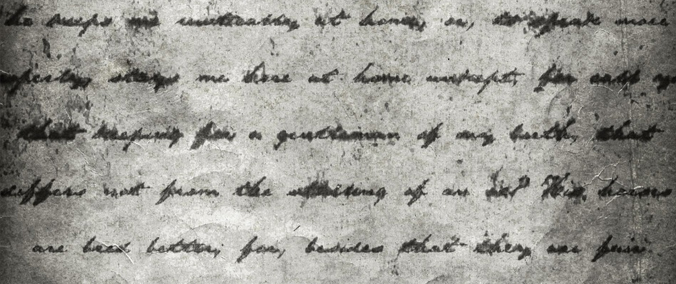 he keeps me rustically at home, or, to speak more
stays me here at home unkept; for call
that keeping for a gentleman of my birth, that
differs not from the stalling of an ox? His horses
are bred better; for, besides that they are fair